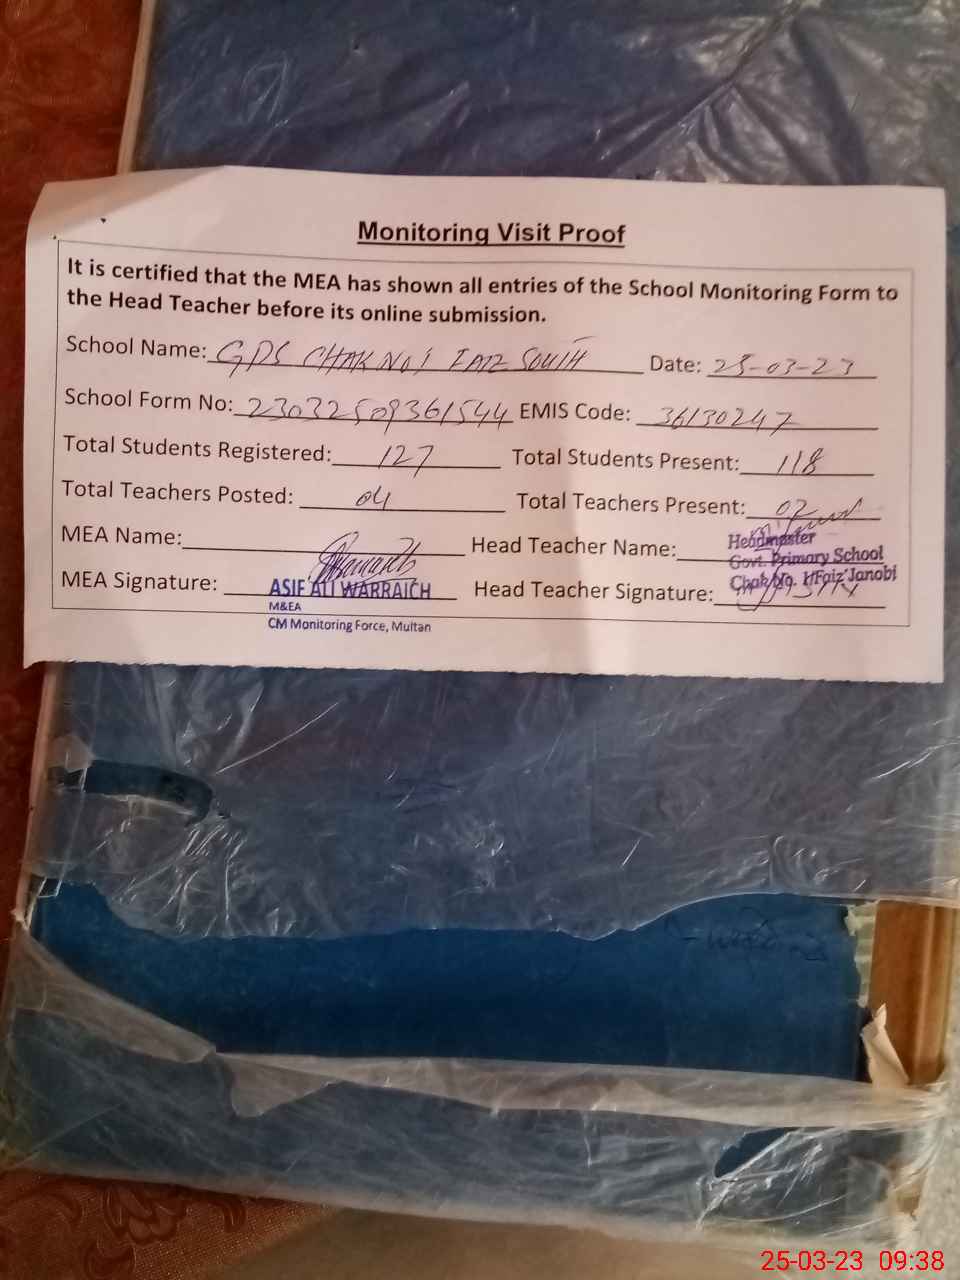 Monitoring Visit Proof
It is certified that the MEA has shown all entries of the School Monitoring Form to
the Head Teacher before its online submission.
School Name: GPS CHAK NO 1 FAIZ SOUTH Date: 25-03-23
School Form No: 23032509361544 EMIS Code: 36130247
Total Students Registered: 127 Total Students Present: 118
Total Teachers Posted: 04 Total Teachers Present: 02
MEA Name: Head Teacher Name:
Headmaster
Govt. Primary School
Chak No. 1/Faiz Janobi
MEA Signature: Head Teacher Signature:
ASIF ALI WARRAICH
M&EA
CM Monitoring Force, Multan
25-03-23 09:38